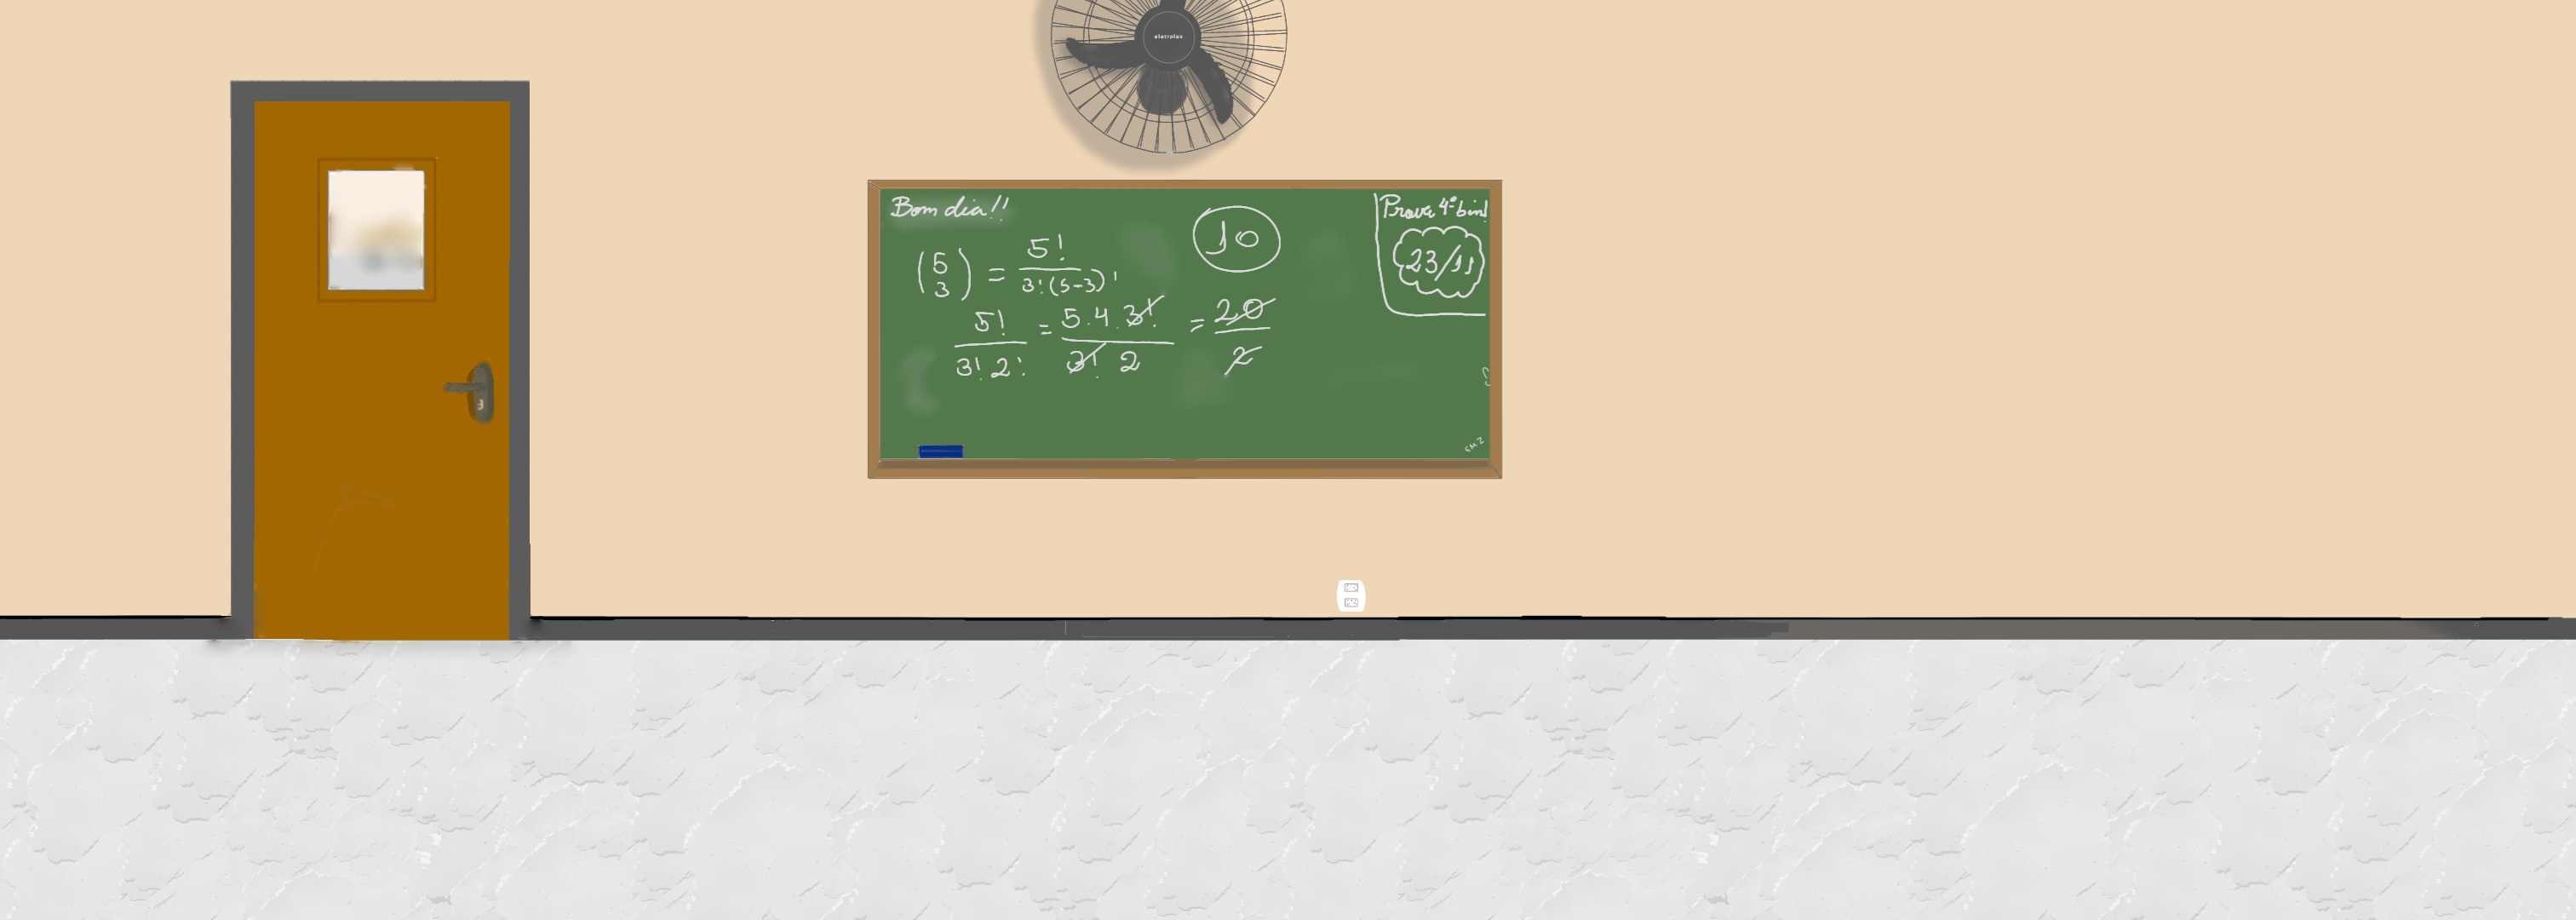 eletrolux
Bom dia!!
(5 3) = 5! / 3!(5-3)!
5! / 3! 2! = 5.4.3! / 3! 2 = 20 / 2
10
Prova 4º bim
23/11